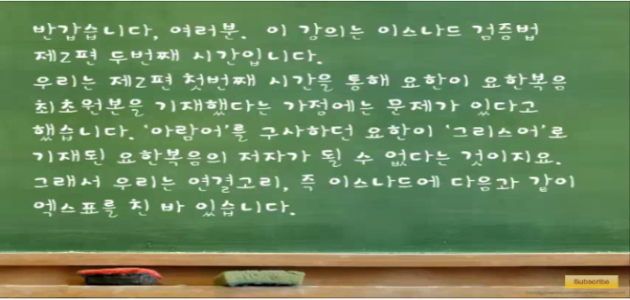 반갑습니다, 여러분. 이 강의는 이스나드 검증법
제2편 두번째 시간입니다.
우리는 제2편 첫번째 시간을 통해 요한이 요한복음
최초원본을 기재했다는 가정에는 문제가 있다고
했습니다. '아람어'를 구사하던 요한이 '그리스어'로
기재된 요한복음의 저자가 될 수 없다는 것이지요.
그래서 우리는 연결고리, 즉 이스나드에 다음과 같이
엑스표를 친 바 있습니다.
Subscribe